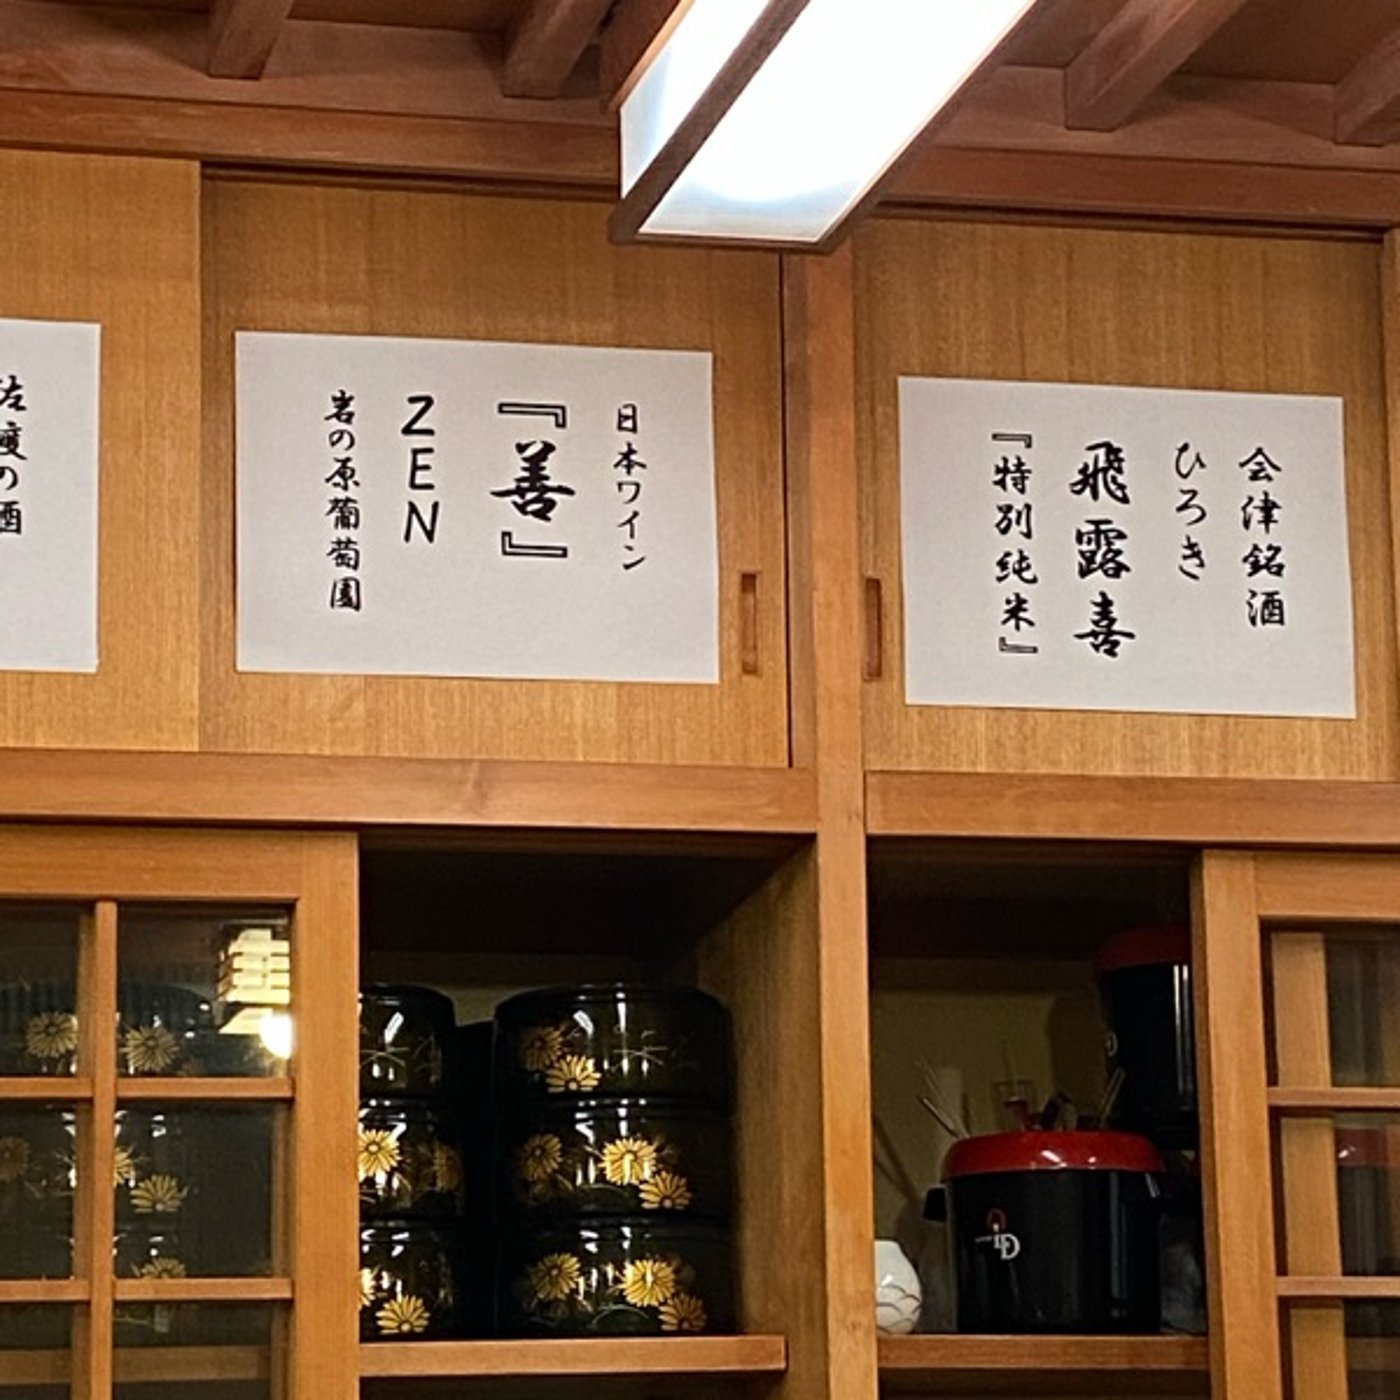 会津銘酒
ひろき
飛露喜
『特別純米』
日本ワイン
『善』
ZEN
岩の原葡萄園
佐渡の酒